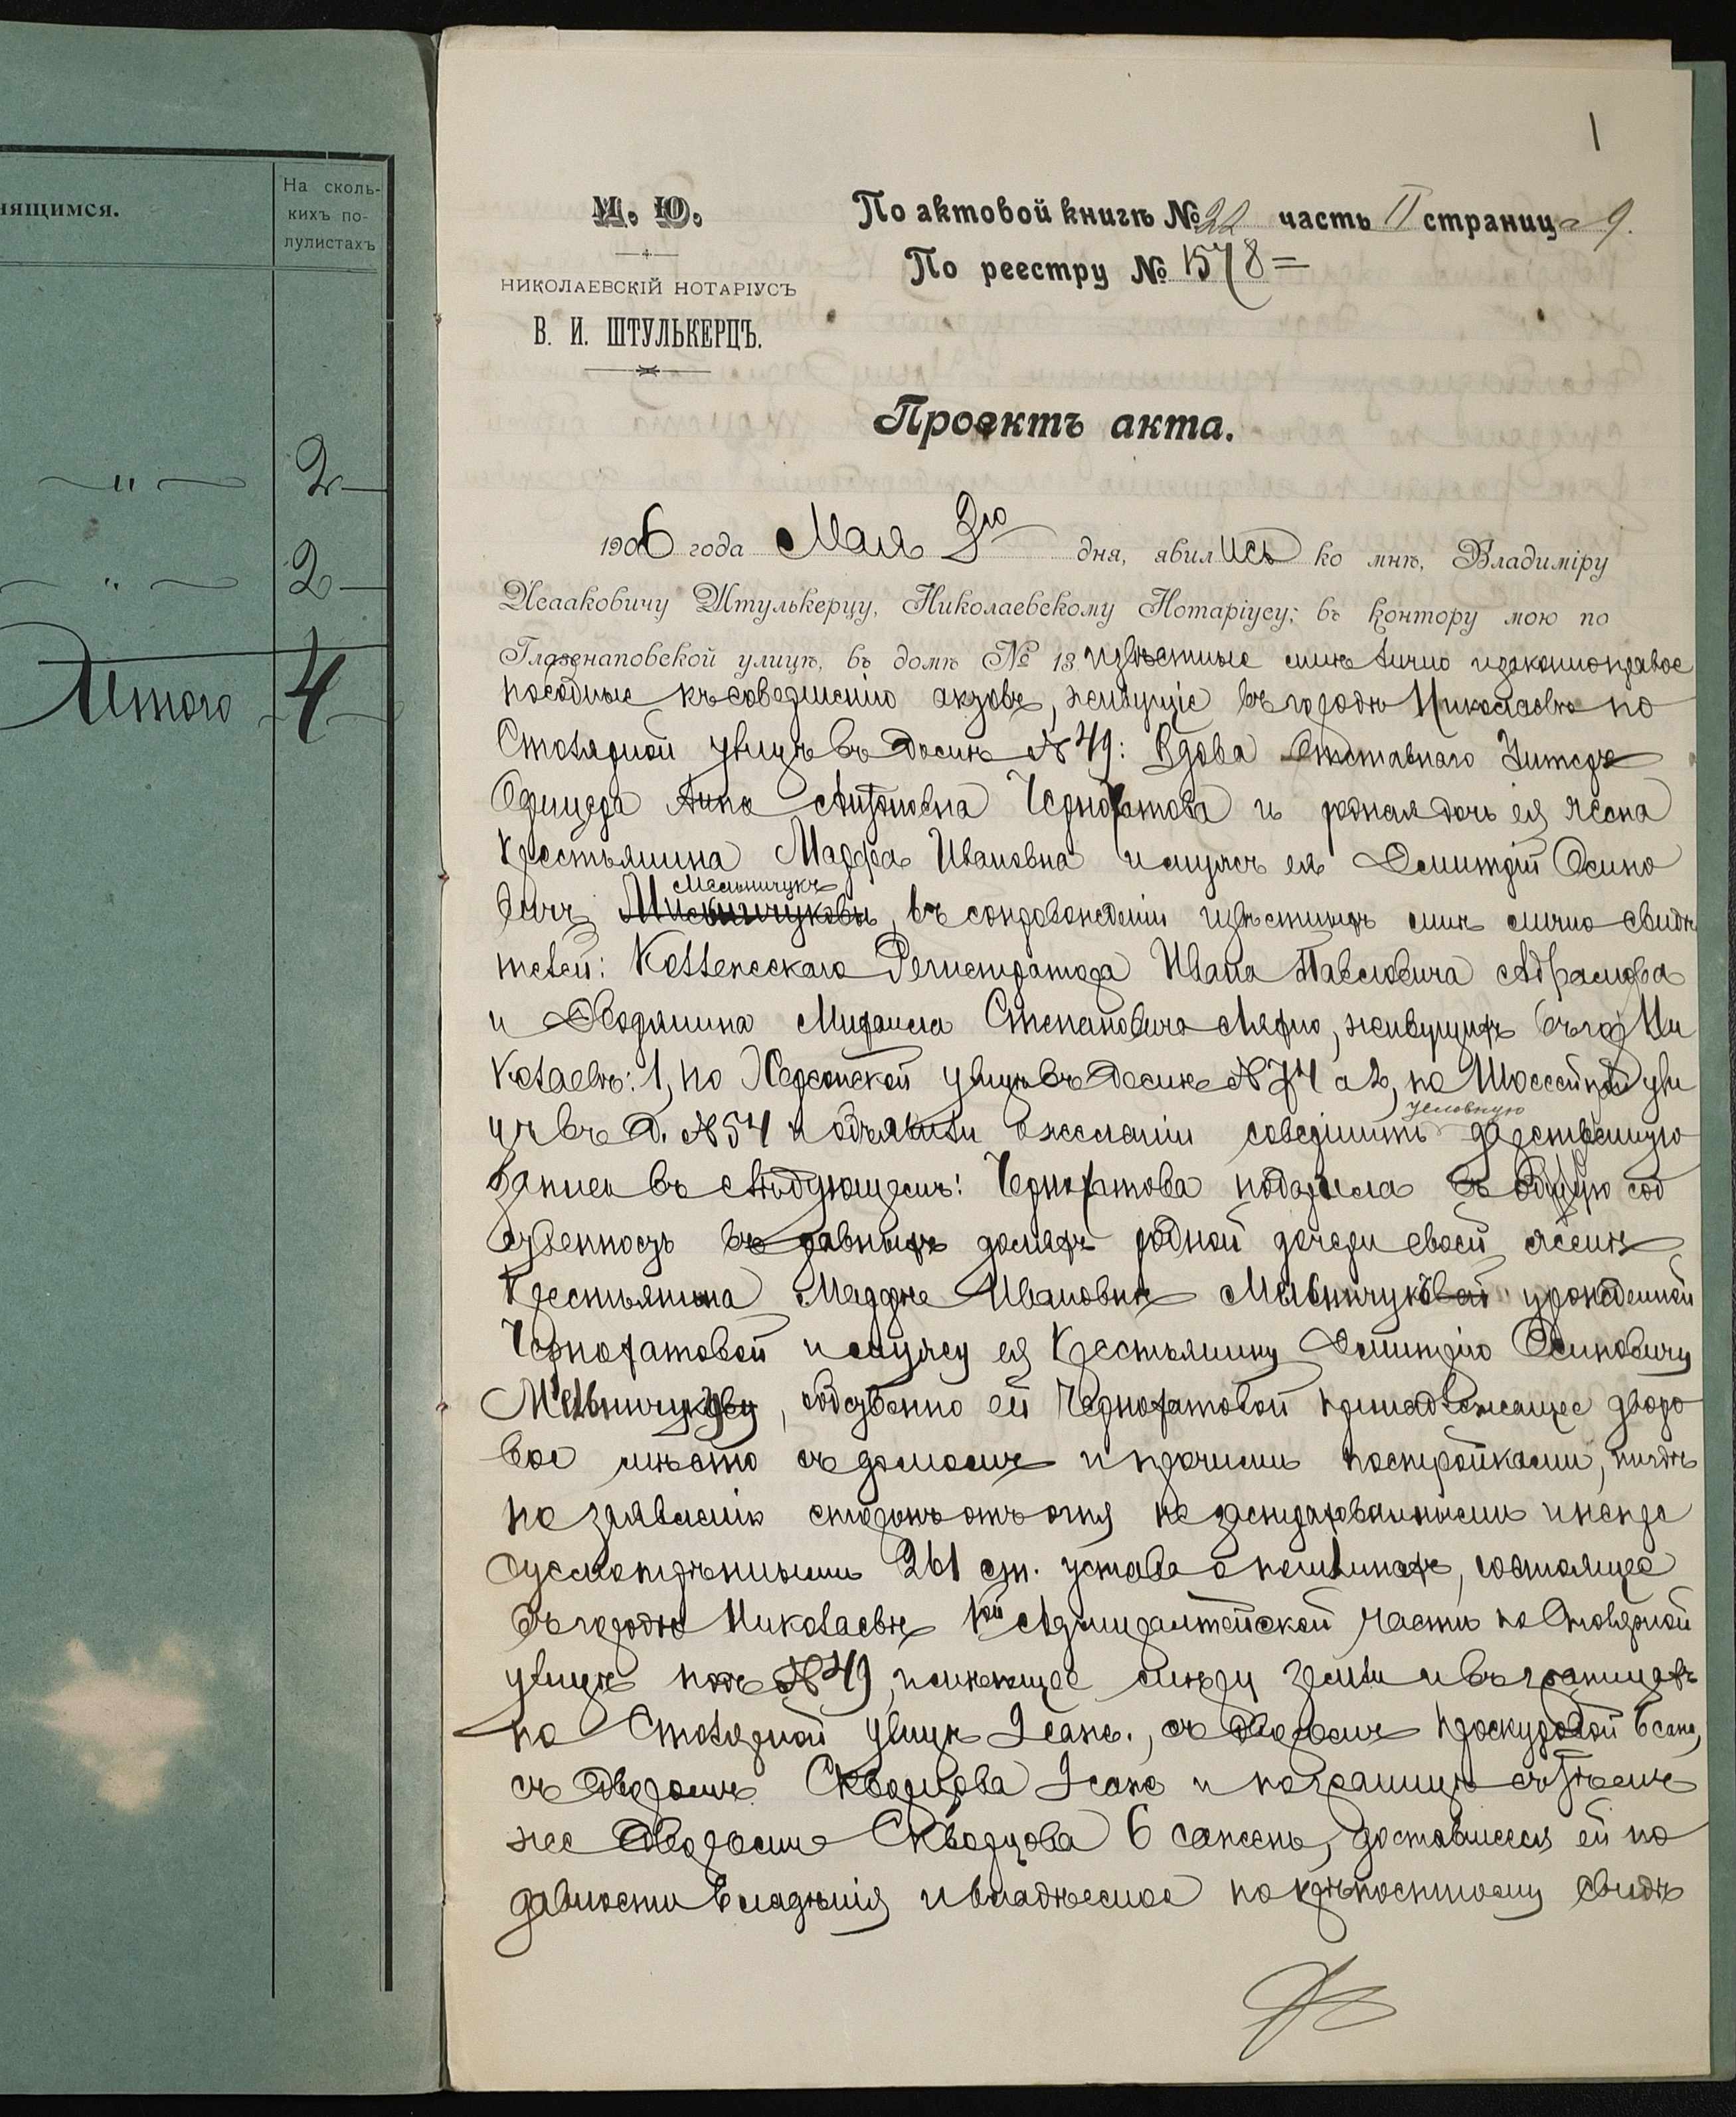 нящимся.
На сколь-
кихъ по-
лулистахъ
" 2
" 2
Итого 4
1
М. Ю.
НИКОЛАЕВСКІЙ НОТАРІУСЪ
В. И. ШТУЛЬКЕРЦЪ.
По актовой книгѣ № 22 часть II страница 9.
По реестру № 1578=
Проектъ акта.
1906 года Мая 2го дня, явились ко мнѣ, Владиміру
Исааковичу Штулькерцу, Николаевскому Нотаріусу; въ контору мою по
Глазенаповской улицѣ, въ домѣ № 13 извѣстные мнѣ лично и законноправос
пособные къ совершенію актовъ, живущіе въ городѣ Николаевѣ по
Столярной улицѣ въ домѣ № 49: Вдова Отставного Унтеръ
Офицера Анна Антоновна Чернохатова и родная дочь ея жена
Крестьянина Марфа Ивановна и мужъ ея Дмитрій Осипо
вичъ Мельничукъ, въ сопровожденіи извѣстныхъ мнѣ лично свидѣ
телей: Коллежскаго Регистратора Ивана Павловича Абрамова
и Дворянина Михаила Степановича, живущихъ въ гор Ни
колаевѣ: 1, по Херсонской улицѣ въ домѣ № 74 а 2, по Шоссейной ули
цѣ въ д. № 54 и объявили о желаніи совершить условную дарственную
запись въ слѣдующемъ: Чернохатова подарила въ общую соб
ственность въ равныхъ доляхъ родной дочери своей женѣ
Крестьянина Марфѣ Ивановнѣ Мельничуковой урожденной
Чернохатовой и мужу ея Крестьянину Дмитрію Осиповичу
Мельничукову, собственно ей Чернохатовой принадлежащее дворо
вое мѣсто съ домомъ и прочими постройками, нигдѣ
по заявленію сторонъ отъ огня не застрахованными и непре
дусмотрѣнными 261 ст. устава о пошлинахъ, состоящее
въ городѣ Николаевѣ 1ой Адмиралтейской части по Столярной
улицѣ подъ № 49, и имѣющее мѣры земли и въ границахъ
по Столярной улицѣ 9 саж., съ дворомъ Проскуровой 6 саж,
съ дворомъ Скворцова 9 саж и по границѣ съ тѣмъ
же дворомъ Скворцова 6 сажень, доставшееся ей по
давности владѣнія и владѣемое по крѣпостному свидѣ